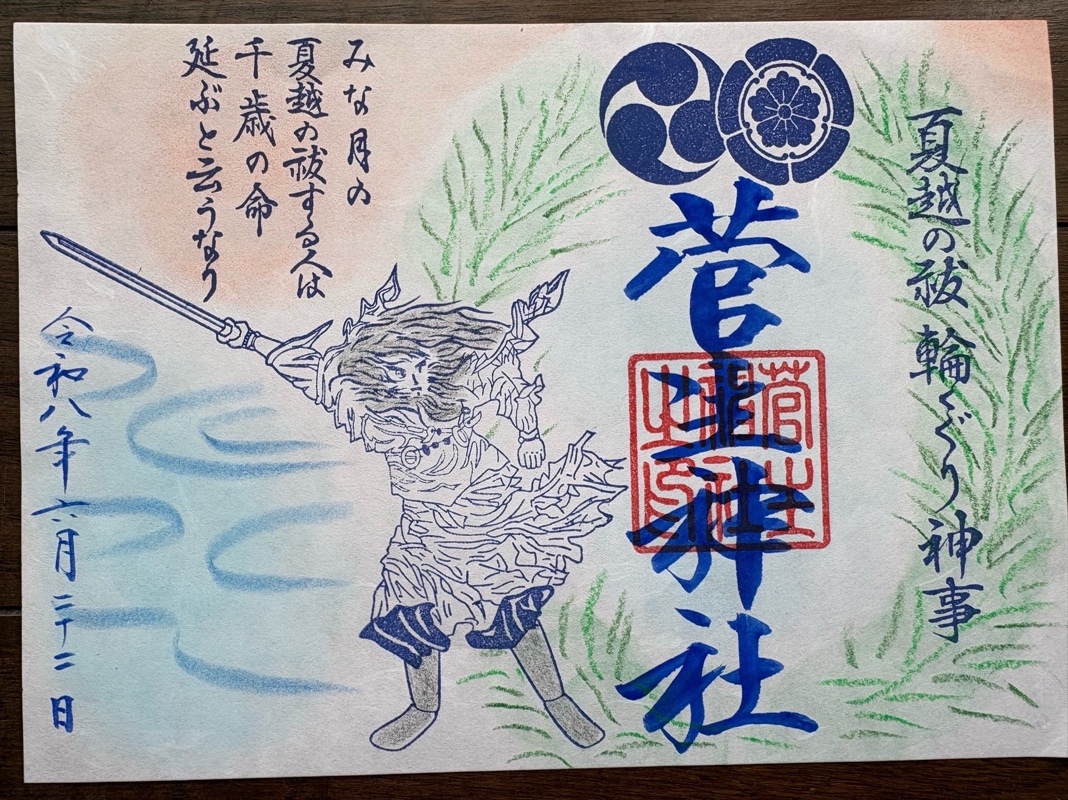 夏越の祓 輪くぐり神事
菅生神社
菅生神社之印
みな月の
夏越の祓する人は
千歳の命
延ぶと云うなり
令和八年六月二十二日